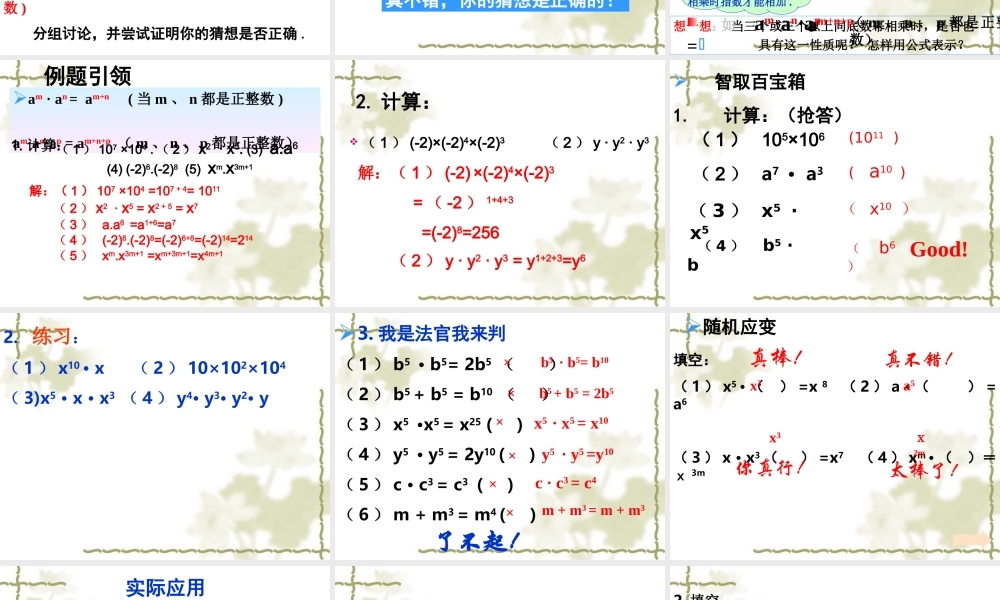 数 )
分组讨论，并尝试证明你的猜想是否正确 .
真不错，你的猜想是正确的！
相乘时指数才能相加 .
想一想：当三个或三个以上同底数幂相乘时，是否也
具有这一性质呢？ 怎样用公式表示？
例题引领
aᵐ · aⁿ = aᵐ⁺ⁿ ( 当 m 、 n 都是正整数 )
1. 计算：（ 1 ） 10⁷ ×10⁴ .（ 2 ） x² · x⁵ . (3) a.a⁶
(4) (-2)⁶.(-2)⁸ (5) xᵐ.x³ᵐ⁺¹
解：（ 1 ） 10⁷ ×10⁴ =10⁷⁺⁴= 10¹¹
（ 2 ） x² · x⁵ = x²⁺⁵ = x⁷
（ 3 ） a.a⁶ =a¹⁺⁶=a⁷
（ 4 ） (-2)⁶.(-2)⁸=(-2)⁶⁺⁸=(-2)¹⁴=2¹⁴
（ 5 ） xᵐ.x³ᵐ⁺¹ =xᵐ⁺³ᵐ⁺¹=x⁴ᵐ⁺¹
2. 计算：
（ 1 ） (-2)×(-2)⁴×(-2)³ （ 2 ） y · y² · y³
解：（ 1 ） (-2)×(-2)⁴×(-2)³
= （ -2 ） ¹⁺⁴⁺³
=(-2)⁸=256
（ 2 ） y · y² · y³ = y¹⁺²⁺³=y⁶
智取百宝箱
1. 计算：（抢答）
（1） 10⁵×10⁶ (10¹¹ )
（2） a⁷ · a³ ( a¹⁰ )
（3） x⁵ · x⁵ （ x¹⁰ ）
（4） b⁵ · b （ b⁶ ） Good!
2. 练习：
（ 1 ） x¹⁰ · x （ 2 ） 10×10²×10⁴
（ 3)x⁵ · x · x³ （ 4 ） y⁴· y³· y²· y
3. 我是法官我来判
（ 1 ） b⁵ · b⁵= 2b⁵ （ × ） b⁵ · b⁵= b¹⁰
（ 2 ） b⁵ + b⁵ = b¹⁰ （ × ） b⁵ + b⁵ = 2b⁵
（ 3 ） x⁵ ·x⁵ = x²⁵ ( × ) x⁵ · x⁵ = x¹⁰
（ 4 ） y⁵ · y⁵ = 2y¹⁰ ( × ) y⁵ · y⁵ =y¹⁰
（ 5 ） c · c³ = c³ ( × ) c · c³ = c⁴
（ 6 ） m + m³ = m⁴ ( × ) m + m³ = m + m³
了不起！
随机应变
填空： 真棒！ 真不错！
（ 1 ） x⁵ ·（ ） =x ⁸ （ 2 ） a ·（ a⁵ ） = a⁶
x³
（ 3 ） x · x³（ ） =x⁷ （ 4 ） xᵐ ·（ ）＝x ³ᵐ
你真行！ 太棒了！
实际应用